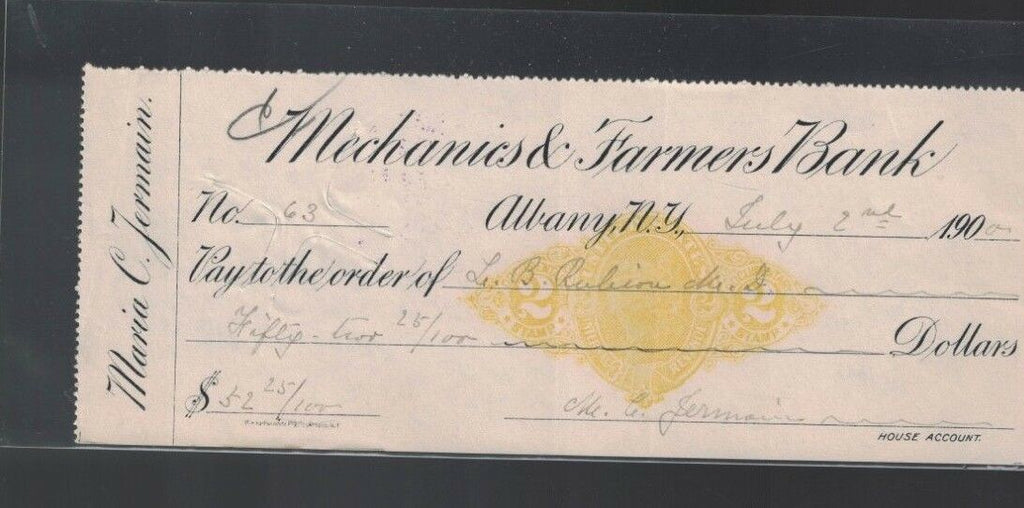 Maria C. Jermain.
Mechanics & Farmers Bank
No. 63 Albany, N.Y., July 2nd 1900
Pay to the order of L. B. M. D.
Fifty-two 25/100 Dollars
$ 52 25/100 M. C. Jermain
HOUSE ACCOUNT.
2 2
STAMP STAMP